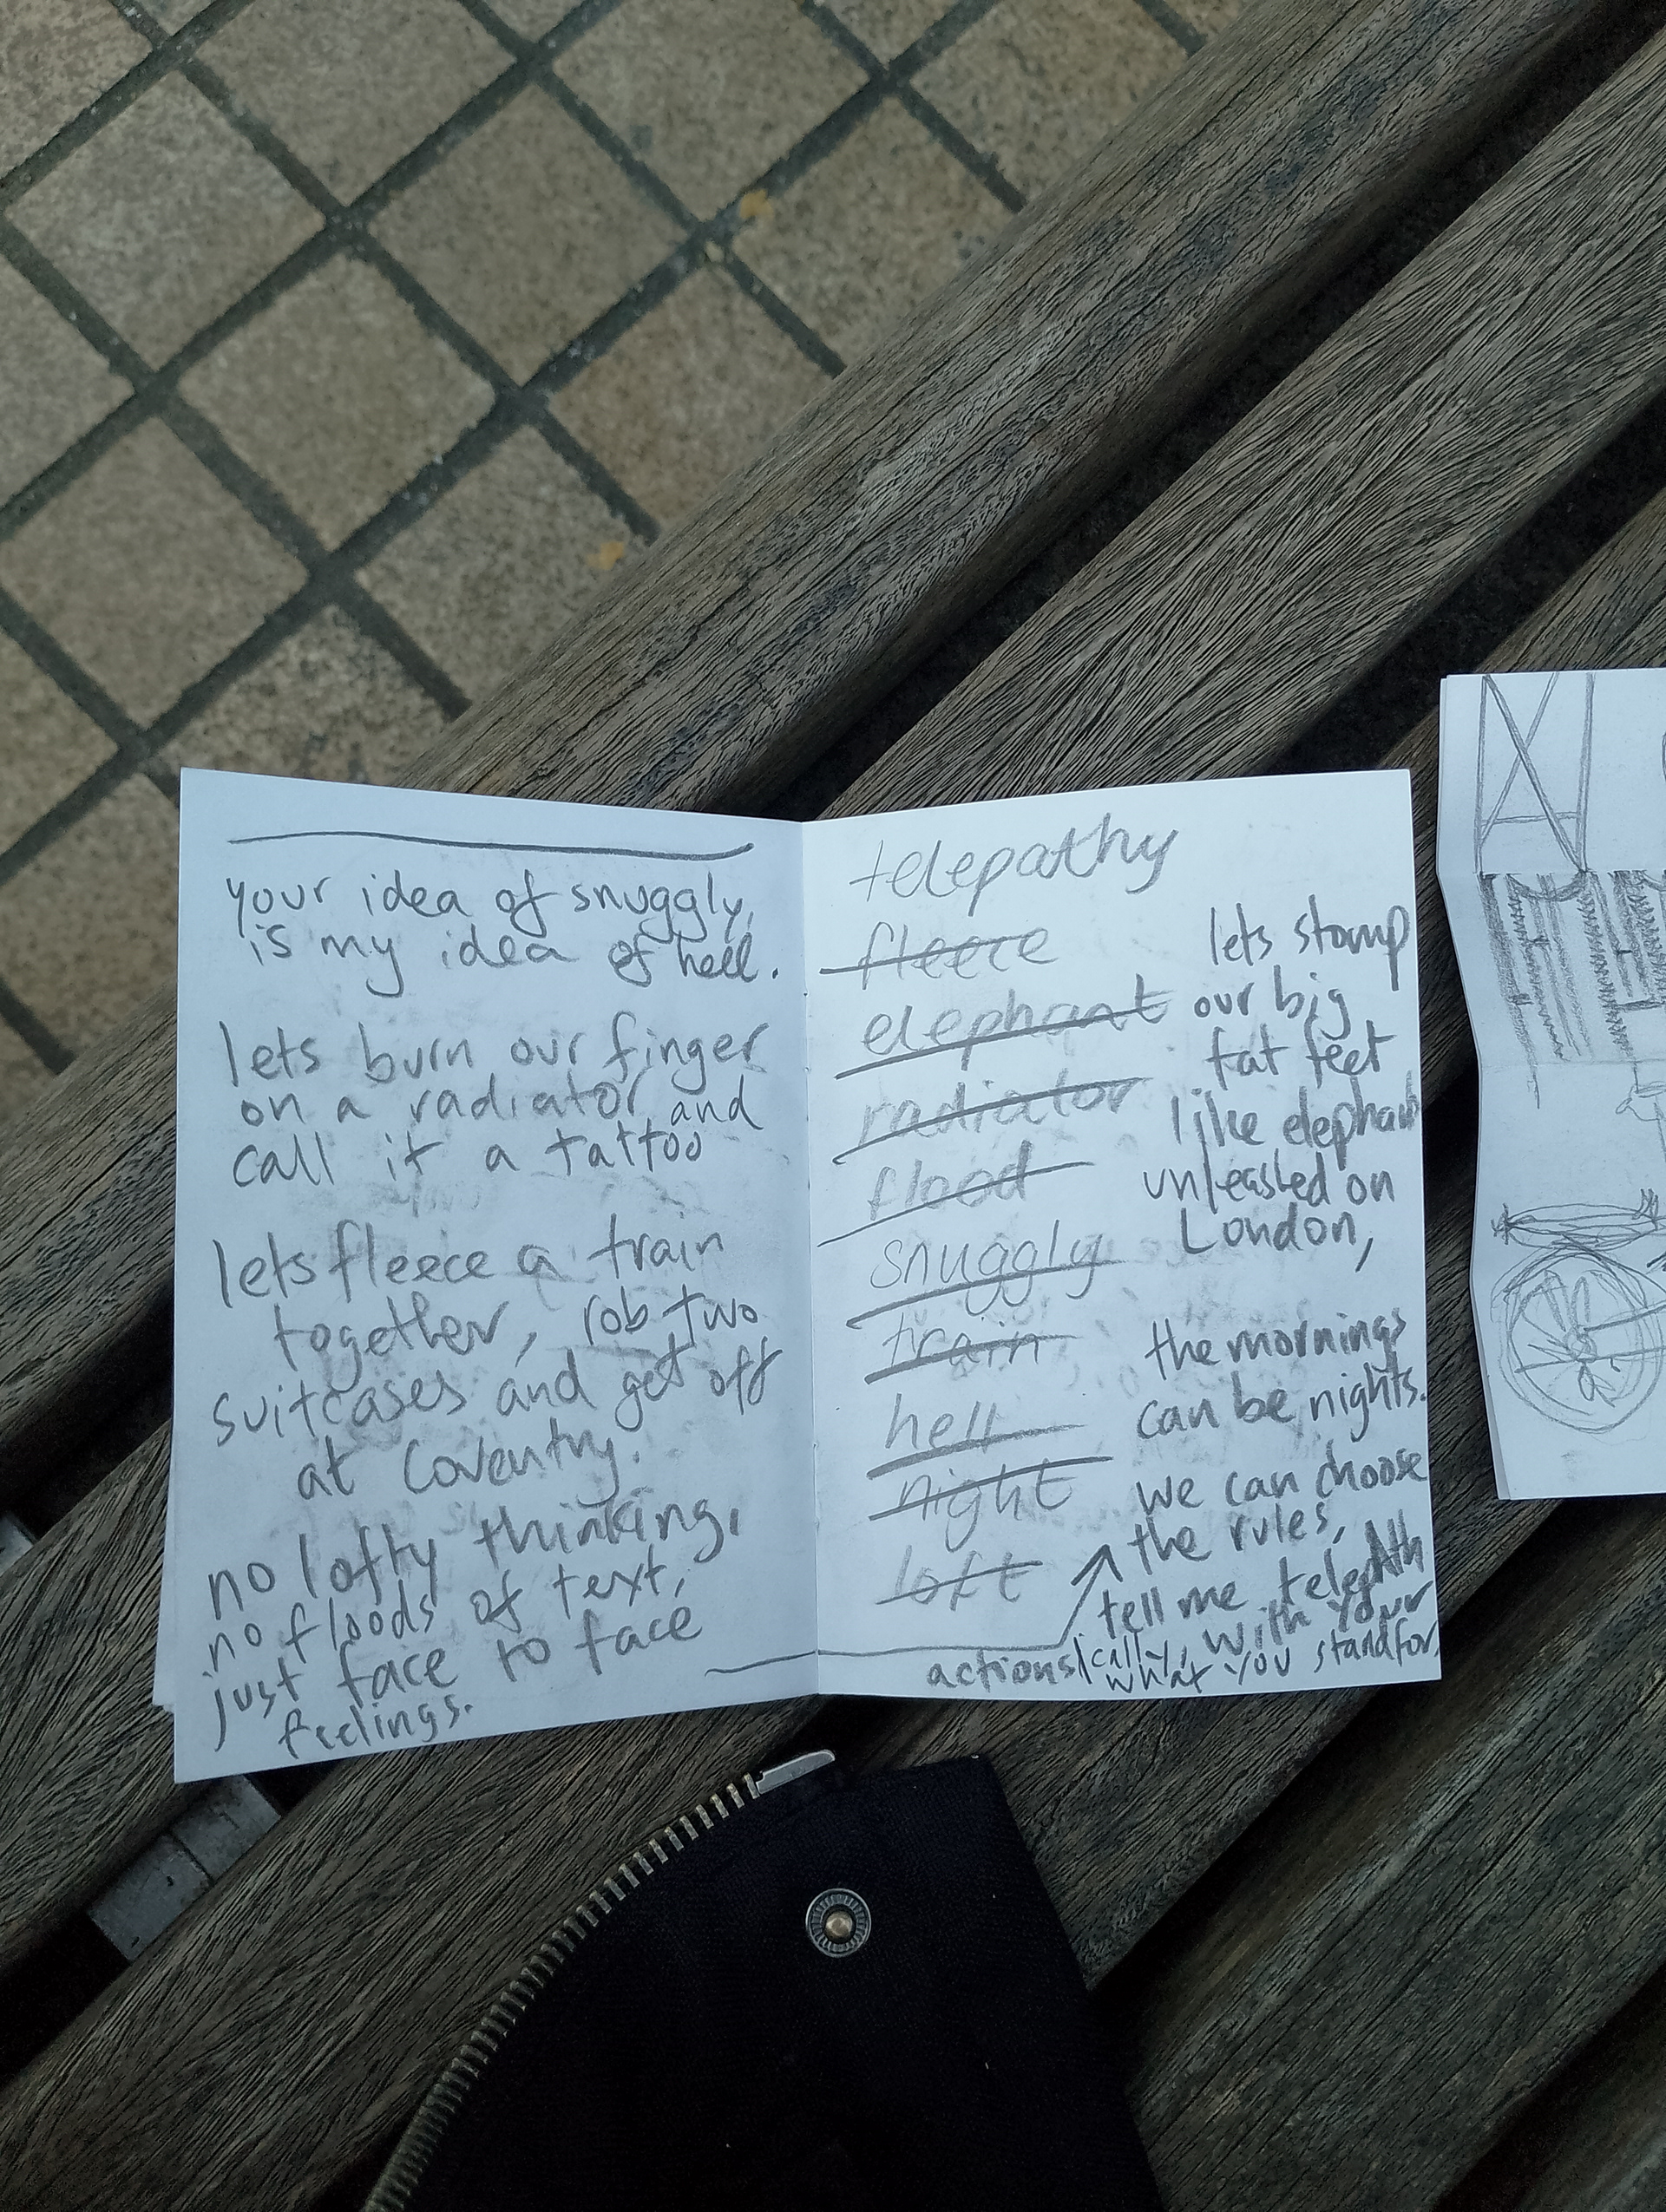 your idea of snuggly,
is my idea of hell.
lets burn our finger
on a radiator and
call it a tattoo
lets fleece a train
together, rob two
suitcases and get off
at Coventry.
no lofty thinking,
no floods of text,
just face to face
feelings.
telepathy
fleece
elephant
radiator
flood
snuggly
train
hell
night
loft
lets stomp
our big
fat feet
like elephants
unleashed on
London,
the mornings
can be nights.
we can choose
the rules,
tell me telepath
ically, with your
actions what you stand for,